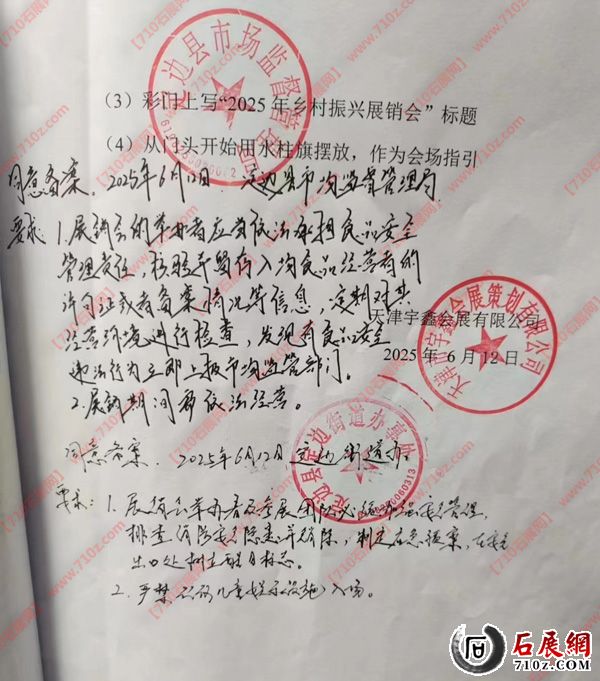 （3）彩门上写“2025年乡村振兴展销会”标题
（4）从门头开始用水柱旗摆放，作为会场指引
同意备案. 2025年6月12日 定边县市场监督管理局
要求: 1.展销会的举办者应当依法承担食品安全
管理责任, 核验并留存入场食品经营者的
许可证或者备案情况等信息, 定期对其
经营环境进行检查, 发现有食品安全
违法行为立即上报市场监管部门。
2.展销期间都依法经营。
天津宇鑫会展有限公司
2025年6月12日
同意备案. 2025年6月12日 定边街道办
要求: 1. 展销会举办者及参展团队必须加强安全管理,
排查消防安全隐患并消除, 制定应急预案, 在安全
出口处树立醒目标志。
2. 严禁儿童娱乐设施入场。
定边县市场监督管理局
天津市宇鑫会展策划有限公司
定边县定边街道办事处
【710石展网】
www.710z.com
石展網
710z.com